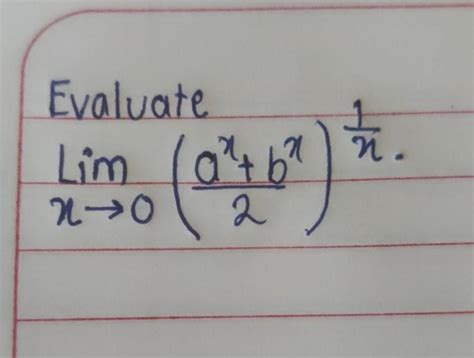 Evaluate
Lim x→0 ((a^x + b^x)/2)^(1/x).